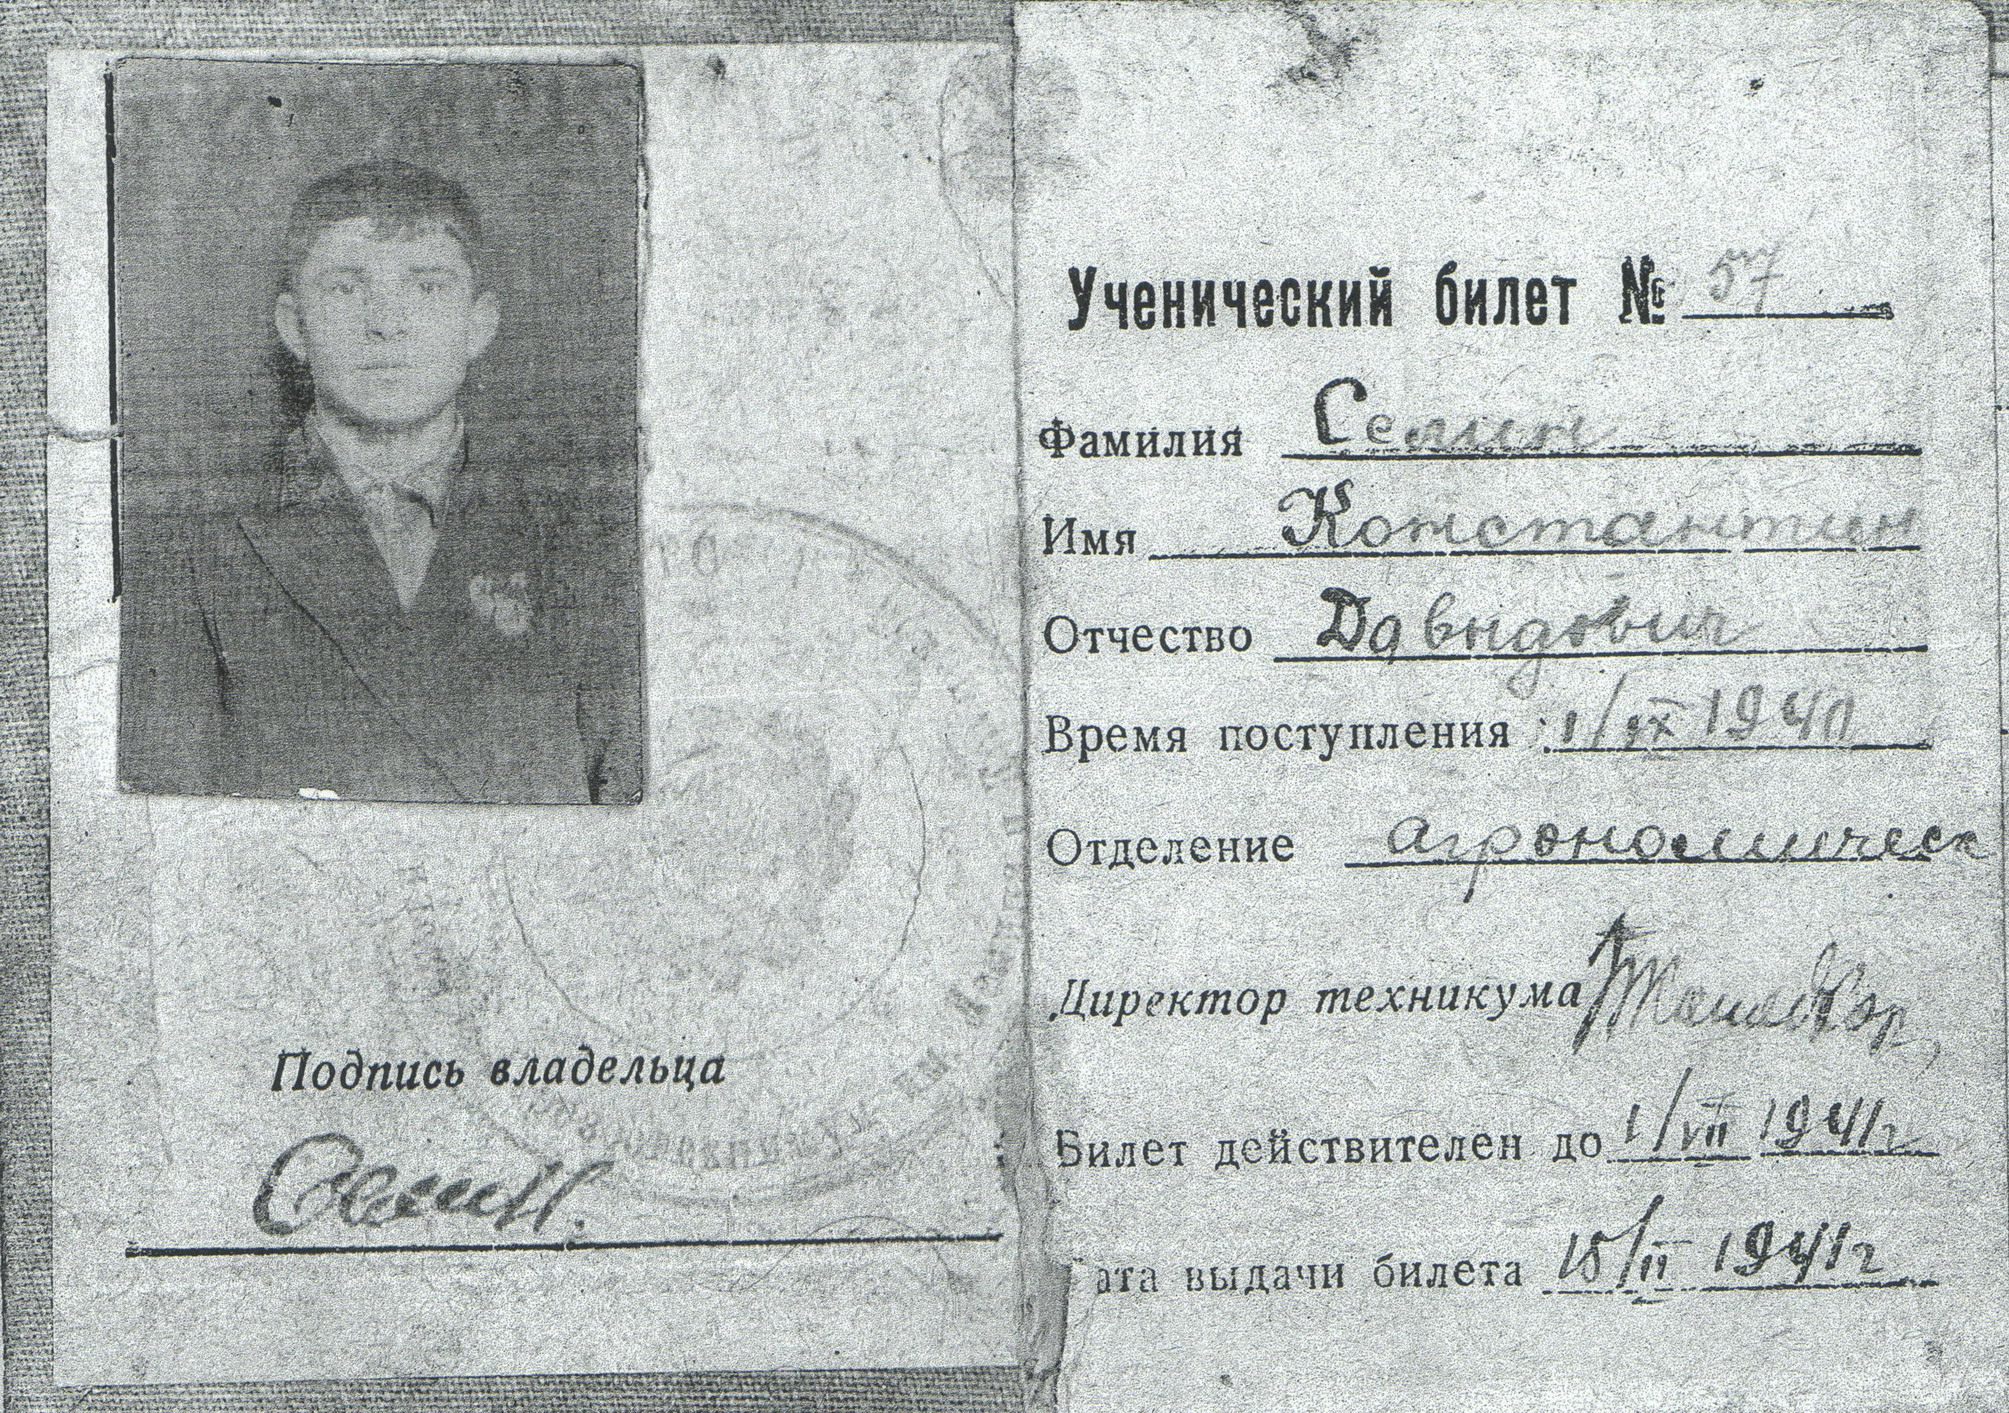 Подпись владельца
Семин.
Ученический билет № 57
Фамилия Семин
Имя Константин
Отчество Давыдович
Время поступления 1/IX 1940
Отделение агрономическ
Директор техникума
Билет действителен до 1/VII 1941г
ата выдачи билета 15/II 1941г